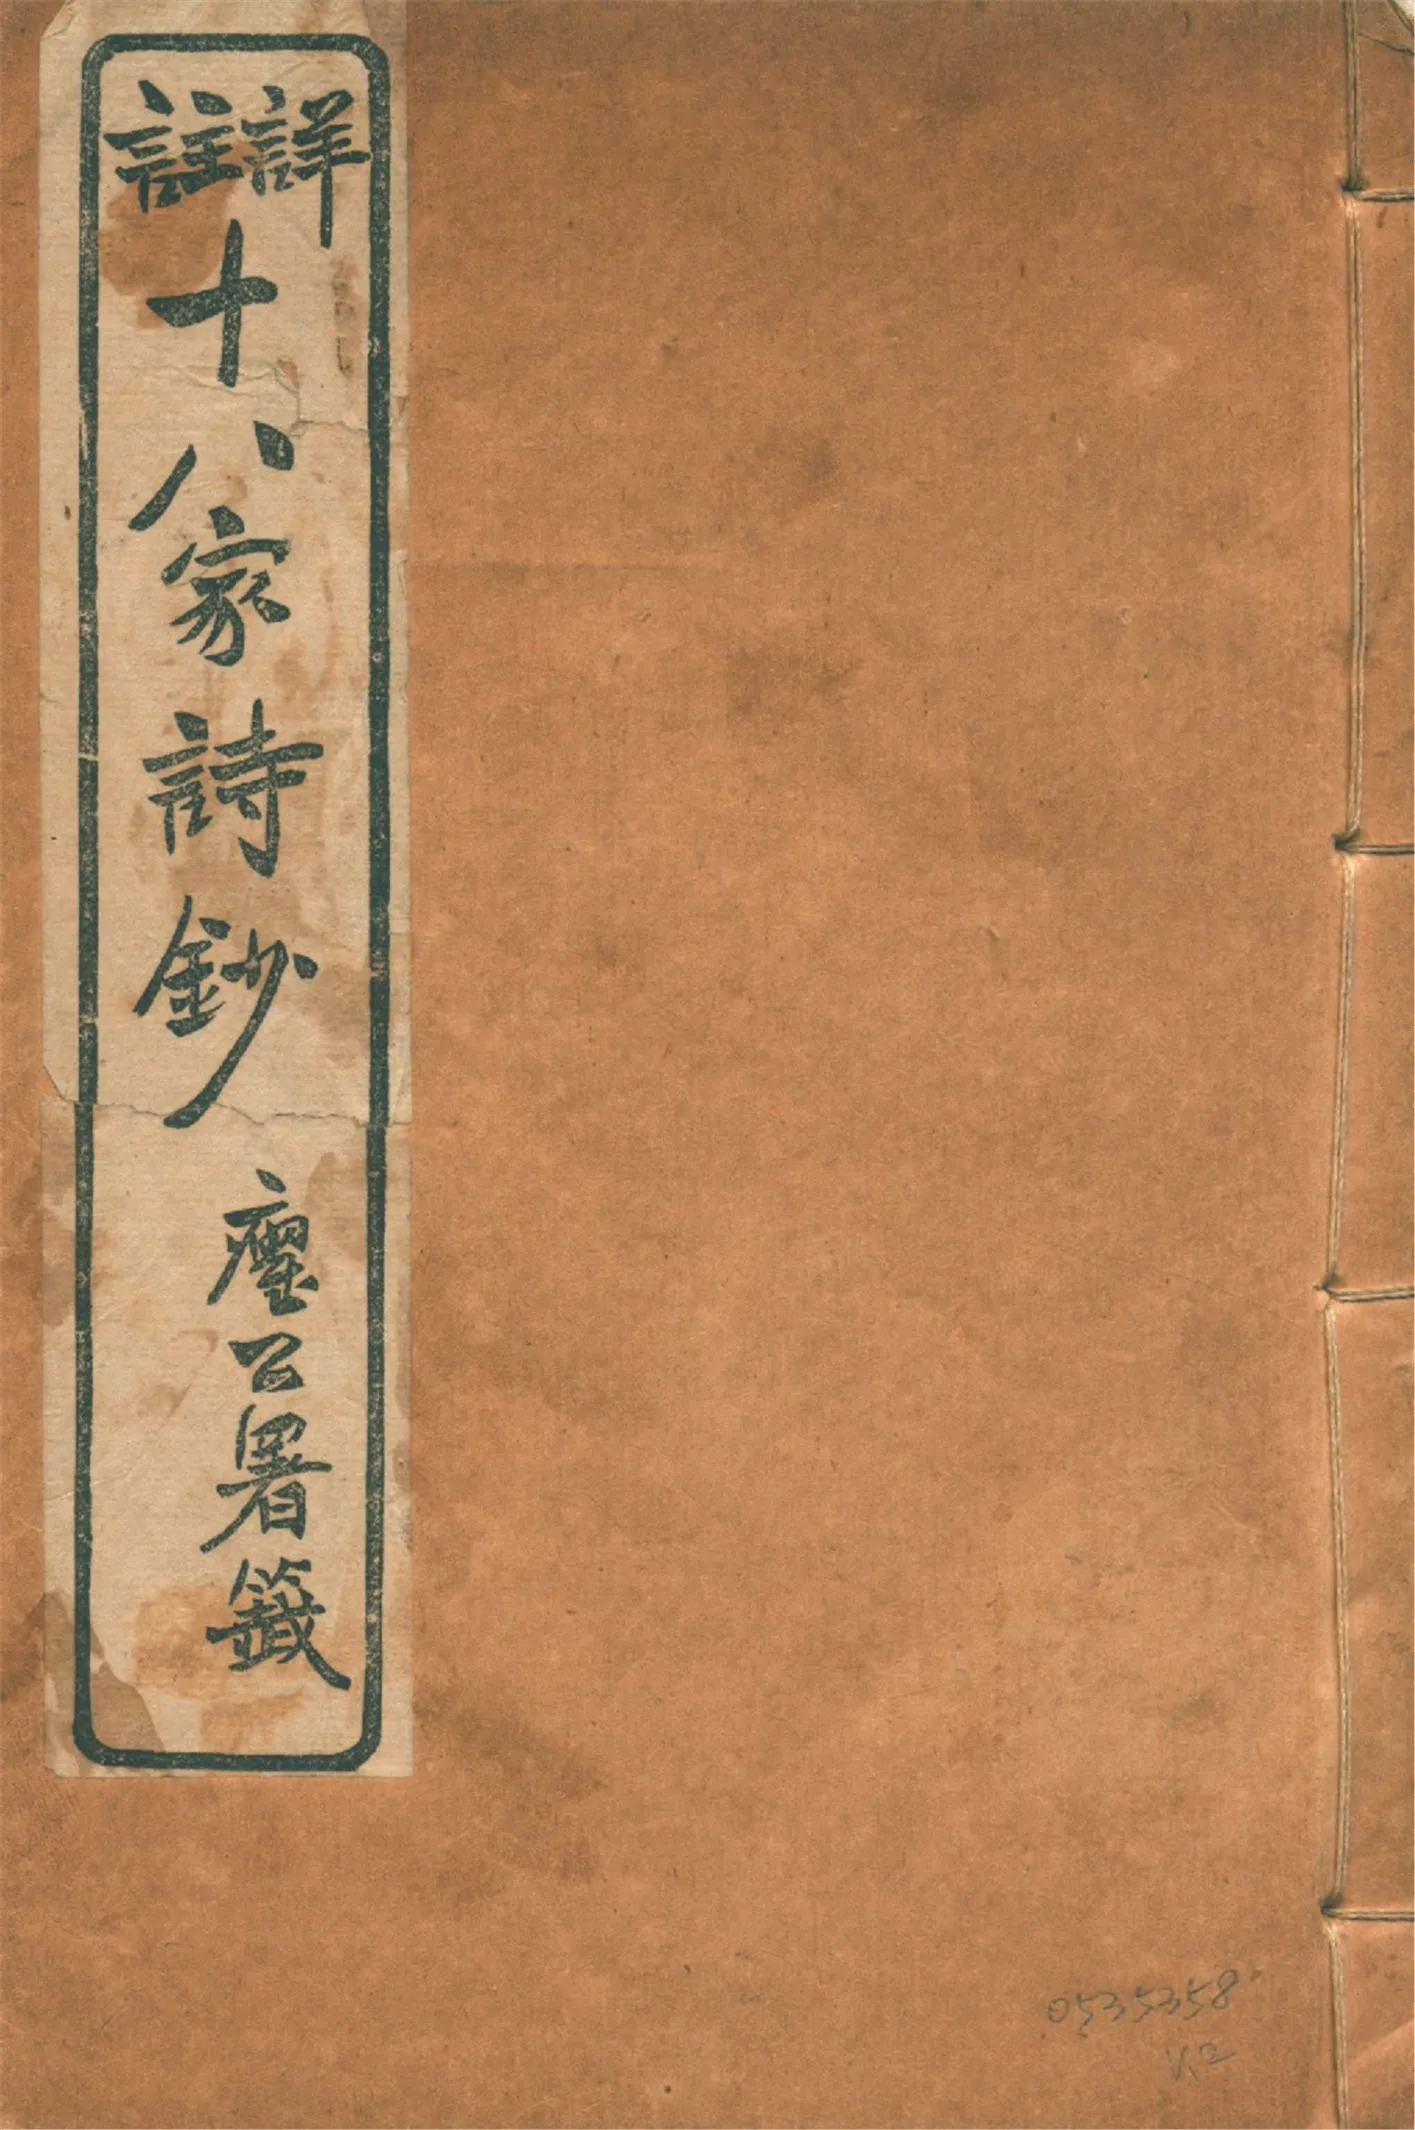 詳註
十八家詩鈔
公署籤
0535358
V.2